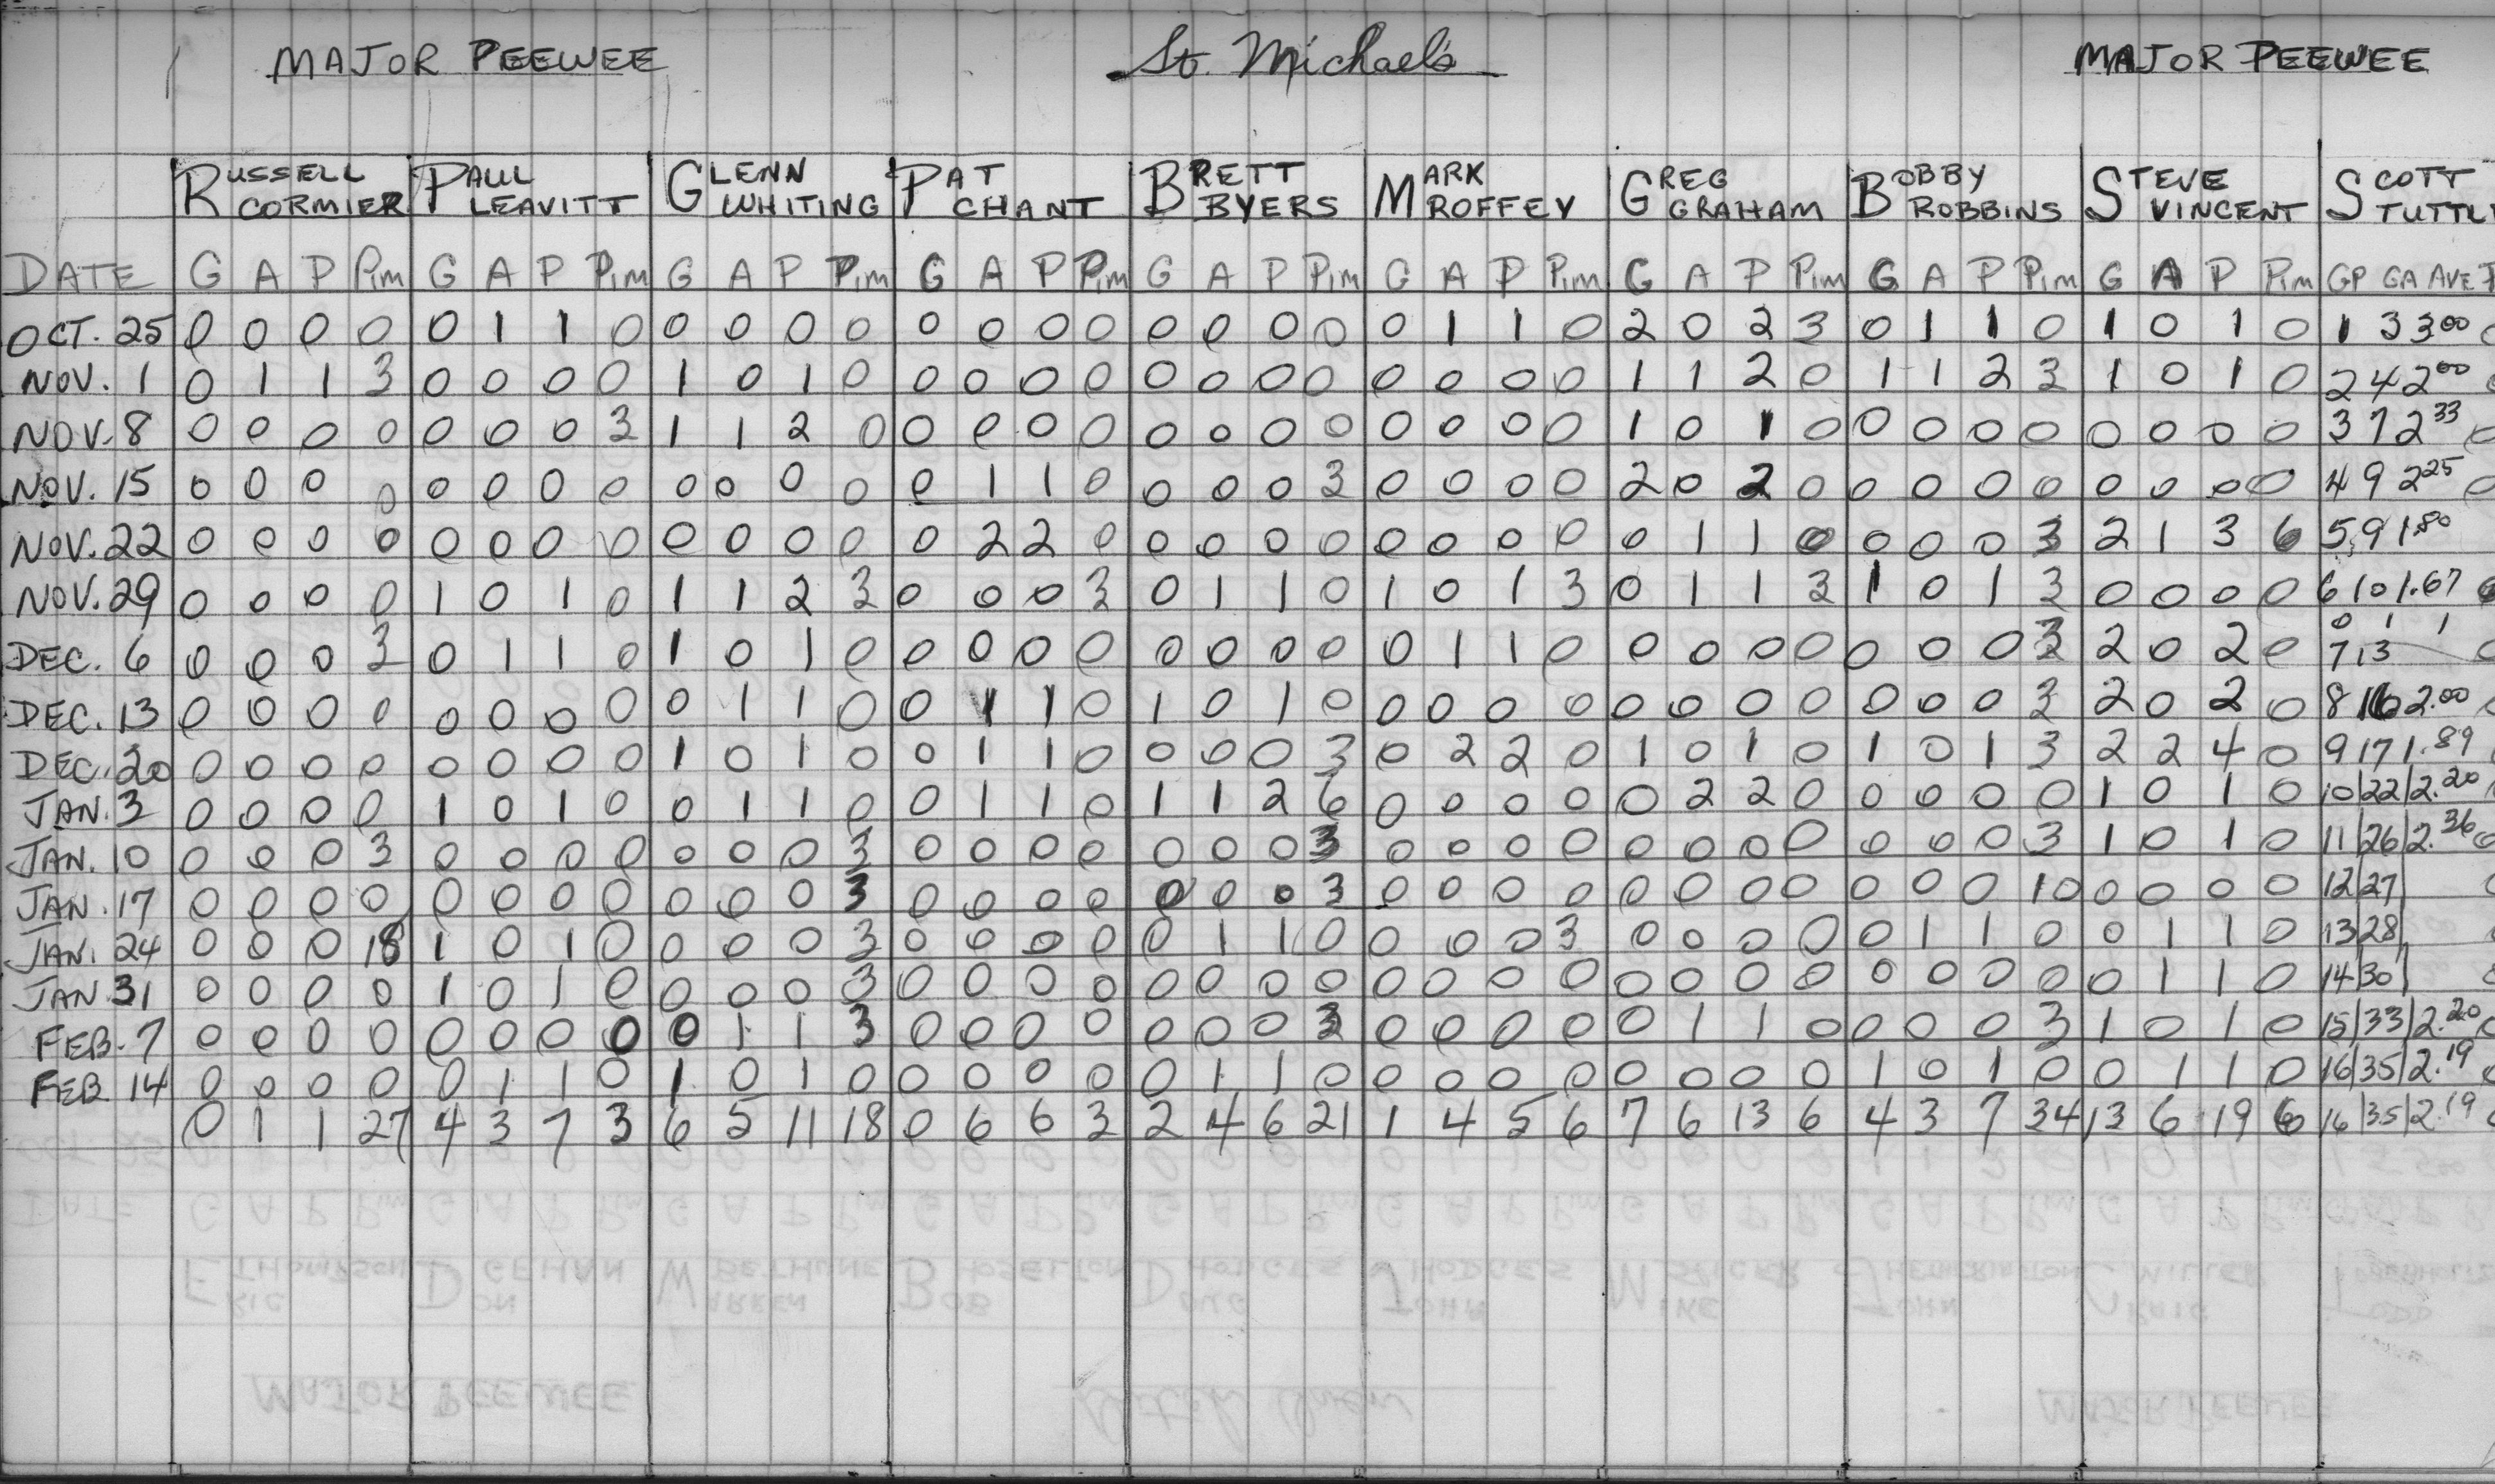 MAJOR PEEWEE St. Michael's MAJOR PEEWEE
RUSSELL CORMIER PAUL LEAVITT GLENN WHITING PAT CHANT BRETT BYERS MARK ROFFEY GREG GRAHAM BOBBY ROBBINS STEVE VINCENT SCOTT
DATE G A P Pim G A P Pim G A P Pim G A P Pim G A P Pim G A P Pim G A P Pim G A P Pim G A P Pim GP GA AVE
OCT. 25 0 0 0 0 0 1 1 0 0 0 0 0 0 0 0 0 0 0 0 0 0 1 1 0 2 0 2 3 0 1 1 0 1 0 1 0 1 3 3.00
NOV. 1 0 1 1 3 0 0 0 0 1 0 1 0 0 0 0 0 0 0 0 0 0 0 0 0 1 1 2 0 1 1 2 3 1 0 1 0 2 4 2.00
NOV. 8 0 0 0 0 0 0 0 3 1 1 2 0 0 0 0 0 0 0 0 0 0 0 0 0 1 0 1 0 0 0 0 0 0 0 0 0 3 7 2.33
NOV. 15 0 0 0 0 0 0 0 0 0 0 0 0 0 1 1 0 0 0 0 3 0 0 0 0 2 0 2 0 0 0 0 0 0 0 0 0 4 9 2.25
NOV. 22 0 0 0 0 0 0 0 0 0 0 0 0 0 2 2 0 0 0 0 0 0 0 0 0 0 1 1 0 0 0 0 3 2 1 3 6 5 9 1.80
NOV. 29 0 0 0 0 1 0 1 0 1 1 2 3 0 0 0 3 0 1 1 0 1 0 1 3 0 1 1 3 1 0 1 3 0 0 0 0 6 10 1.67
0 1 1
DEC. 6 0 0 0 3 0 1 1 0 1 0 1 0 0 0 0 0 0 0 0 0 0 1 1 0 0 0 0 0 0 0 0 3 2 0 2 0 7 13
DEC. 13 0 0 0 0 0 0 0 0 0 1 1 0 0 1 1 0 1 0 1 0 0 0 0 0 0 0 0 0 0 0 0 3 2 0 2 0 8 16 2.00
DEC. 20 0 0 0 0 0 0 0 0 1 0 1 0 0 1 1 0 0 0 0 3 0 2 2 0 1 0 1 0 1 0 1 3 2 2 4 0 9 17 1.89
JAN. 3 0 0 0 0 1 0 1 0 0 1 1 0 0 1 1 0 1 1 2 6 0 0 0 0 0 2 2 0 0 0 0 0 1 0 1 0 10|22|2.20
JAN. 10 0 0 0 3 0 0 0 0 0 0 0 3 0 0 0 0 0 0 0 3 0 0 0 0 0 0 0 0 0 0 0 3 1 0 1 0 11|26|2.36
JAN. 17 0 0 0 0 0 0 0 0 0 0 0 3 0 0 0 0 0 0 0 3 0 0 0 0 0 0 0 0 0 0 0 10 0 0 0 0 12|27|
JAN. 24 0 0 0 18 1 0 1 0 0 0 0 3 0 0 0 0 0 1 1 0 0 0 0 3 0 0 0 0 0 1 1 0 0 1 1 0 13|28|
JAN 31 0 0 0 0 1 0 1 0 0 0 0 3 0 0 0 0 0 0 0 0 0 0 0 0 0 0 0 0 0 0 0 0 0 1 1 0 14|30|
FEB. 7 0 0 0 0 0 0 0 0 0 1 1 3 0 0 0 0 0 0 0 3 0 0 0 0 0 1 1 0 0 0 0 3 1 0 1 0 15|33|2.20
FEB 14 0 0 0 0 0 1 1 0 1 0 1 0 0 0 0 0 0 1 1 0 0 0 0 0 0 0 0 0 1 0 1 0 0 1 1 0 16|35|2.19
0 1 1 27 4 3 7 3 6 5 11 18 0 6 6 3 2 4 6 21 1 4 5 6 7 6 13 6 4 3 7 34 13 6 19 6 16|35|2.19